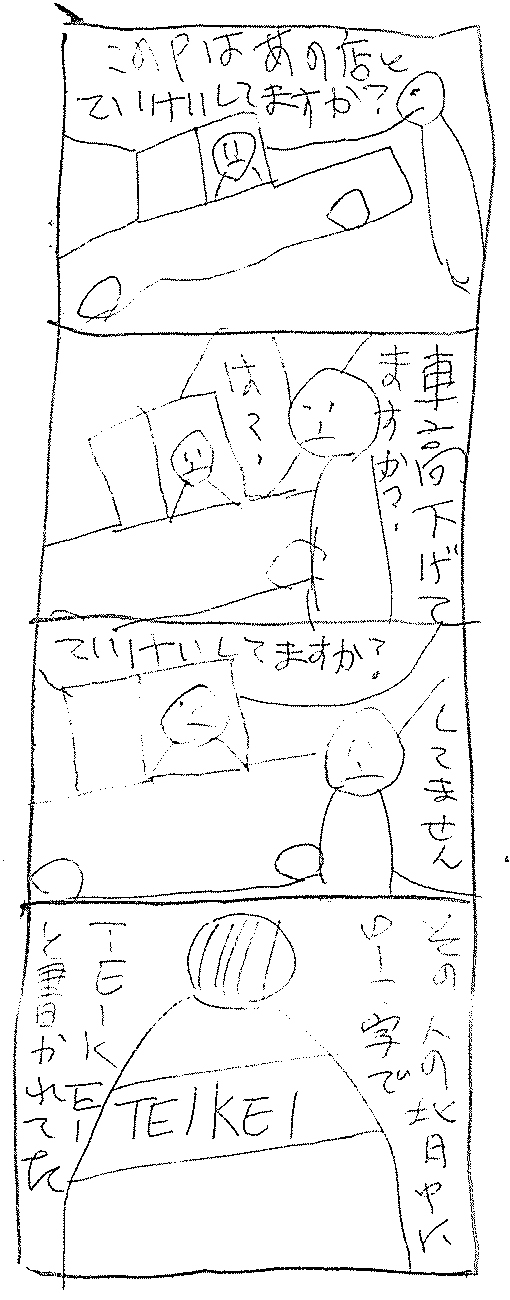 このPはあの店と
ていけいしてますか?
車高下げて
ますか?
は?
ていけいしてますか?
してません
その人の背中に
ローマ字で
TEIKEI
TEIKEI
と書かれてた